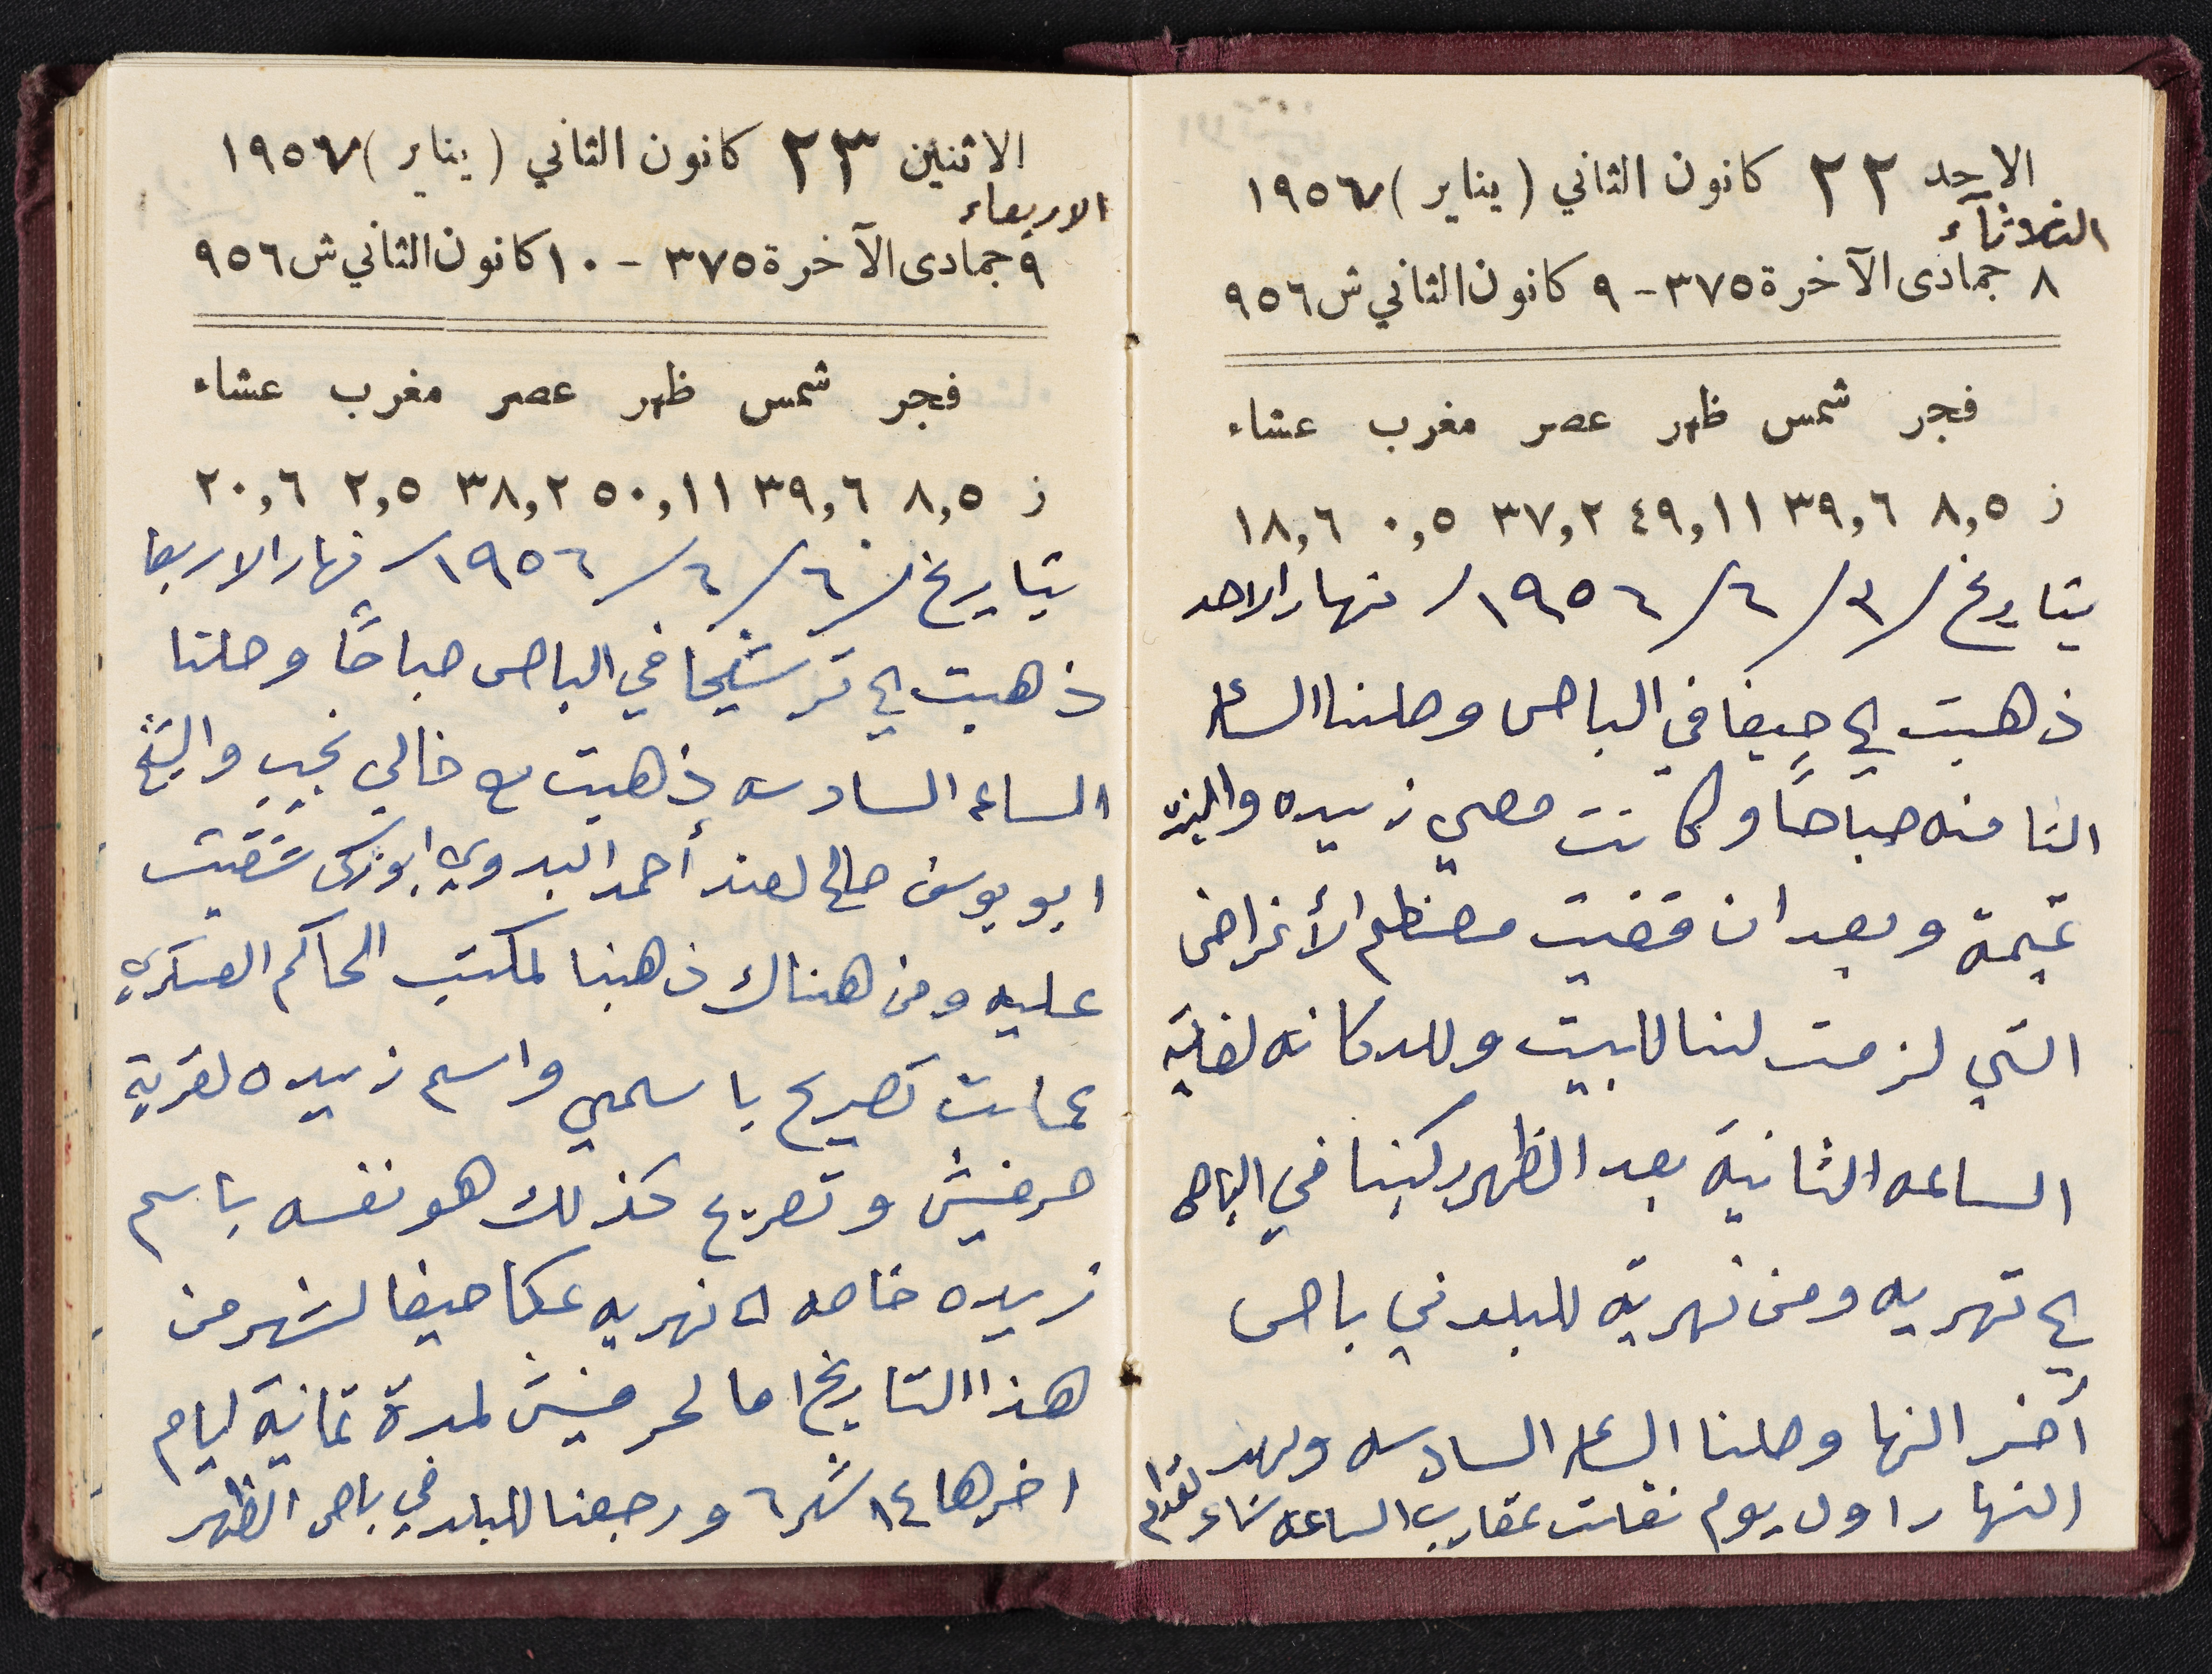 الاحد ٢٢ كانون الثاني ( يناير ) ١٩٥٦
الثلاثآء
٨ جمادى الآخرة ٣٧٥ - ٩ كانون الثاني ش ٩٥٦
فجر شمس ظهر عصر مغرب عشاء
ز ٨,٥ ٣٩,٦ ٤٩,١١ ٣٧,٢ ٠,٥ ١٨,٦
بتاريخ /٣/٦/١٩٥٦/ نهار الاحد
ذهبت الى حيفا في الباص وصلنا الساعه
الثامنه صباحاً وكانت معي زبيده
وبعد ان قضيت معظم الأغراض
التي لزمت لنا للبيت وللدكانه لغاية
الساعه الثانيه بعد الظهر ركبنا في الباص
الى نهريه ومن نهرية للبلد في باص
آخر النها وصلنا الساعه السادسه وبهذ
النهار اول يوم نقلت عقارب الساعه ساعه لقدام
الاثنين ٢٣ كانون الثاني ( يناير ) ١٩٥٦
الاربعاء
٩ جمادى الآخرة ٣٧٥ - ١٠ كانون الثاني ش ٩٥٦
فجر شمس ظهر عصر مغرب عشاء
ز ٨,٥ ٣٩,٦ ٥٠,١١ ٣٨,٢ ٢,٥ ٢٠,٦
بتاريخ /٦/٦/١٩٥٦/ نهار الاربعا
ذهبت الى ترشيحا في الباص صباحًا وصلنا
الساعه السادسه ذهبت مع خالي نجيب والشيخ
ابو يوسف صالح لعند أحمد البدوي ابو زكى شقيت
عليه ومن هناك ذهبنا لمكتب الحاكم العسكري
عملت تصريح باسمي واسم زبيده لقرية
حرفيش وتصريح كذلك هو نفسه باسم
زبيده خاصه الى نهريه عكا حيفا لشهر من
هذا التاريخ اما لحرفيش لمدة ثمانية ايام
اخرها ١٤ شهر ٦ ورجعنا للبلد في باص الظهر